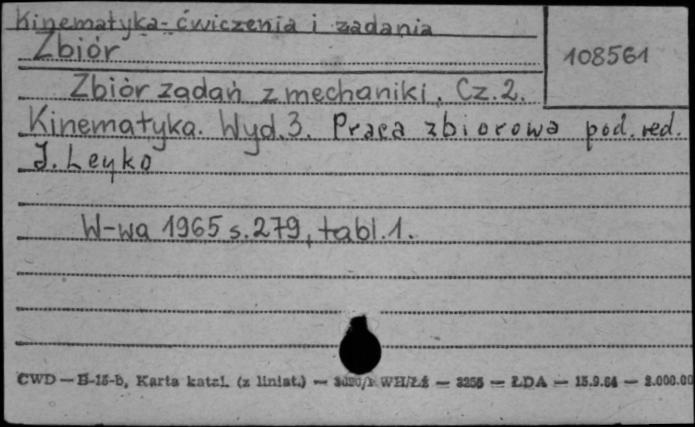 Kinematyka - ćwiczenia i zadania
Zbiór
108561
Zbiór zadań z mechaniki. Cz. 2.
Kinematyka. Wyd. 3. Praca zbiorowa pod. red.
J. Leyko
W-wa 1965 s. 279, tabl. 1.
CWD — B-15-b, Karta katal. (z liniat.) — WH/Łź — 3255 — ŁDA — 15.9.64 — 2.000.00